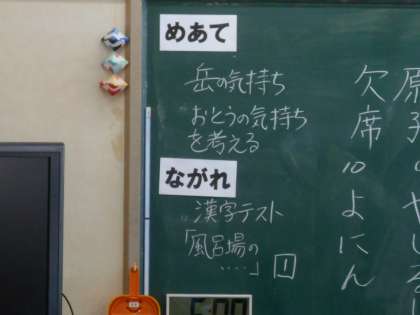 めあて
岳の気持ち
おとうの気持ち
を考える
ながれ
漢字テスト
「風呂場の
‥‥」1
欠席10よにん